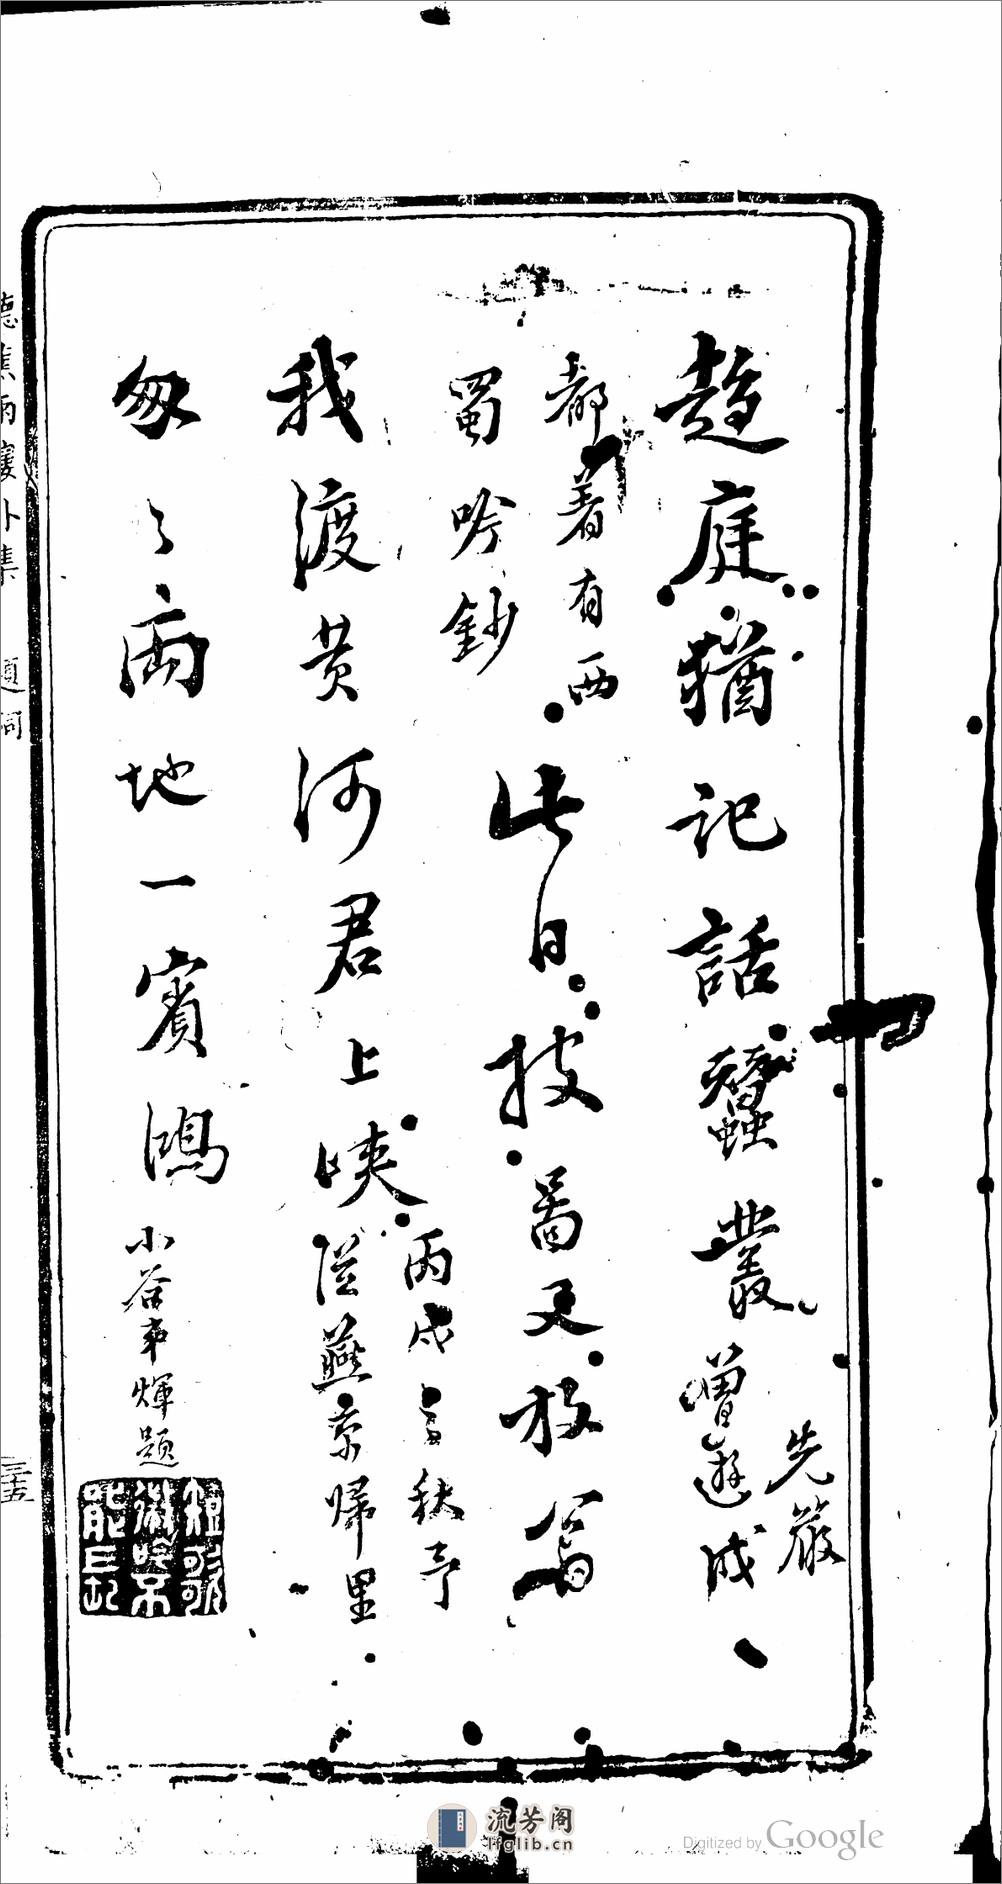 趨庭猶記話蠶叢
先嚴
曾遊成
都著有西
蜀吟鈔
此日披圖更放翁
我渡黄河君上峽
丙戌秋予
從燕京歸里
匆々兩地一賓鴻
小谷弟煇題
德蕉雨廔外集 題詞
三十五
流芳阁
lfglib.cn
Digitized by Google